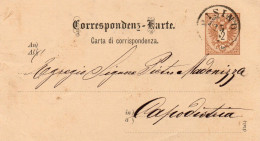 Correspondenz-Karte.
Carta di corrispondenza.
PISINO
An
All'
Egregio Signor Pietro Madonizza
in
a
Capodistria